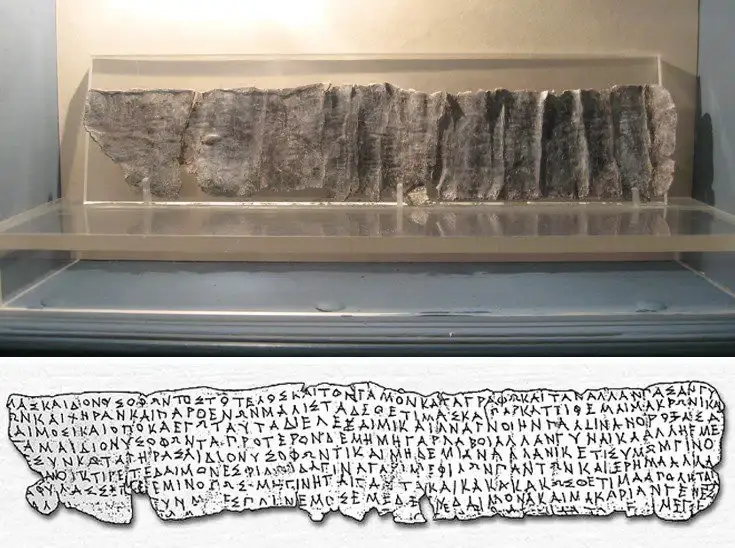 ΜΑΣΚΑΙΔΙΟΝΥΣΟΦΩΝΤΟΣΤΟΤΕΛΟΣΚΑΙΤΟΝΓΑΜΟΝΚΑΤΑΓΡΑΦΩΚΑΙΤΑΝΑΛΛΑΝΠΑΣΑΝΓΥ
ΩΝΚΑΙΧΗΡΑΝΚΑΙΠΑΡΘΕΝΩΝΜΑΛΙΣΤΑΔΕΘΕΤΙΜΑΣΚΑΙΠΑΡΚΑΤΤΙΘΕΜΑΙΜΑΚΡΩΝΙΚΑΙ
ΔΑΙΜΟΣΙΚΑΙΟΠΟΚΑΕΓΩΤΑΥΤΑΔΙΕΛΕΞΑΙΜΙΚΑΙΑΝΑΓΝΟΙΗΝΠΑΛΙΝΑΝΟΡΟΞΑΣΑ
ΓΑΜΑΙΔΙΟΝΥΣΟΦΩΝΤΑΠΡΟΤΕΡΟΝΔΕΜΗΜΗΓΑΡΛΑΒΟΙΑΛΛΑΝΓΥΝΑΙΚΑΑΛΛΗΕΜΕ
ΕΣΥΝΚΑΤΑΓΗΡΑΣΑΙΔΙΟΝΥΣΟΦΩΝΤΙΚΑΙΜΗΔΕΜΙΑΝΑΛΛΑΝΙΚΕΤΙΣΥΜΩΜΓΙΝΟ
ΑΝΟΙΚΤΙΡΕΤΕΔΑΙΜΟΝΕΣΦΙΛΟΙΔΑΓΙΝΑΓΑΡΙΜΕΦΙΛΩΝΠΑΝΤΩΝΚΑΙΕΡΗΜΑΑΛΛΑ
ΦΥΛΑΣΣΕΤΕΕΜΙΝΟΠΩΣΜΗΓΙΝΗΤΑΙΤΑΥΤΑΚΑΙΚΑΚΑΚΑΚΩΣΘΕΤΙΜΑΑΠΟΛΗΤΑΙ
ΥΝΜ ΕΣΠΛΗΝΕΜΟΣΕΜΕΔΕ ΕΥΔΑΙΜΟΝΑΚΑΙΜΑΚΑΡΙΑΝΓΕΝΕΣΤΑΙ